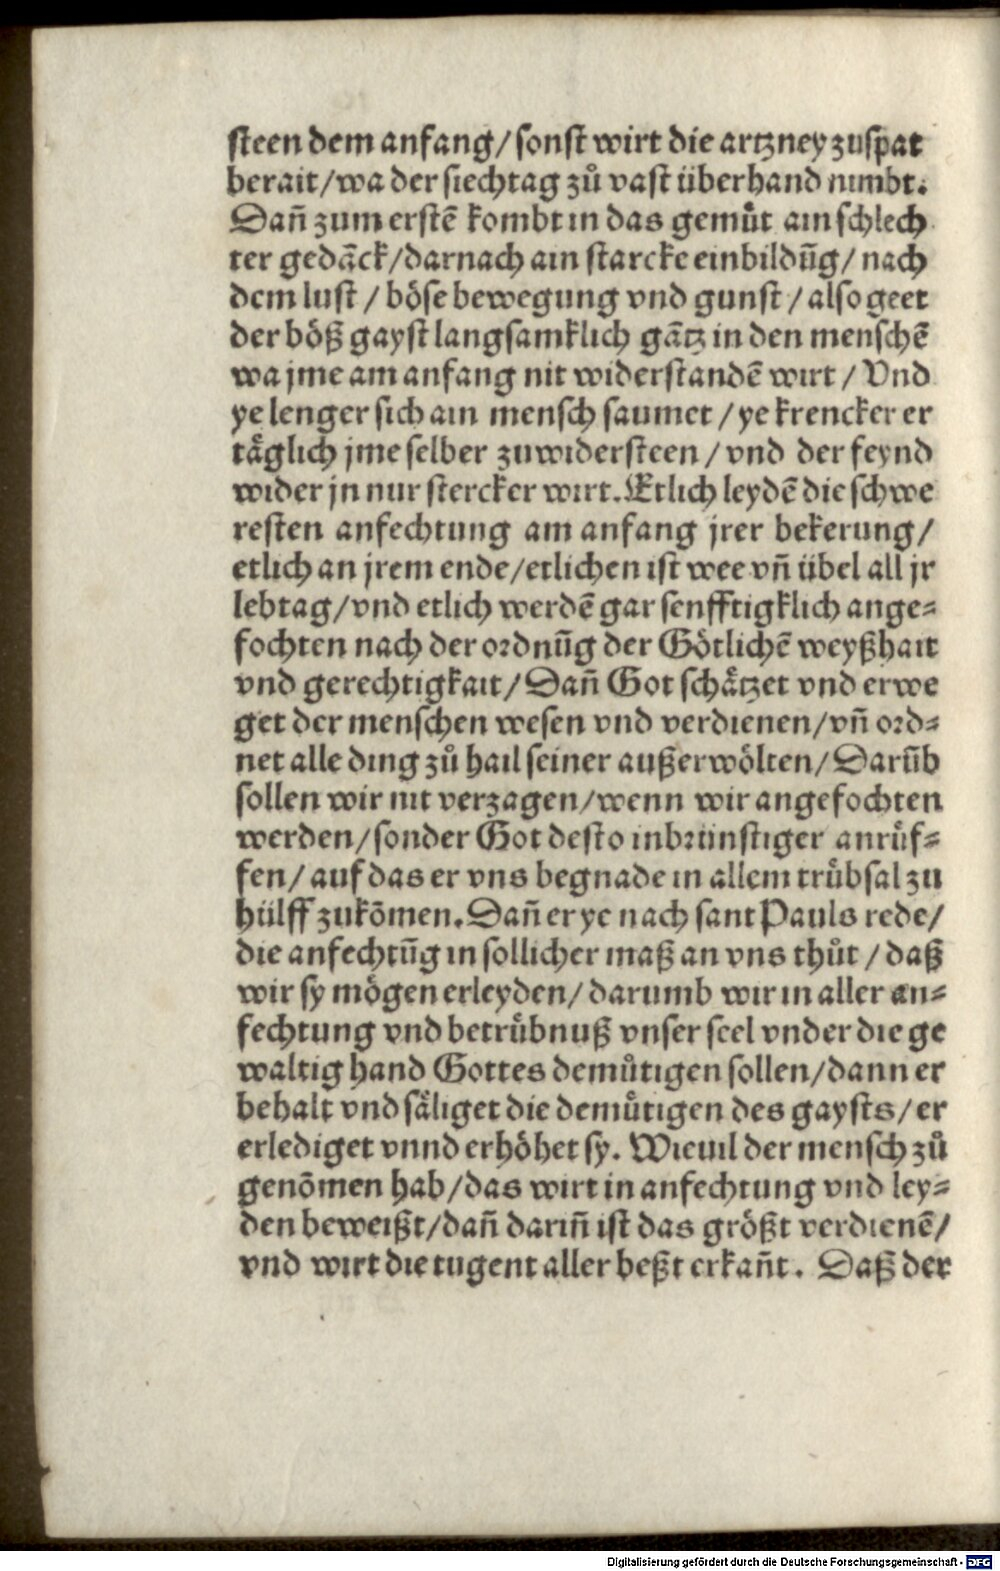 steen dem anfang/sonst wirt die artzney zuspat
berait/wa der siechtag zů vast überhand nimbt.
Dañ zum erstē kombt in das gemuͤt ain schlech
ter gedāck/darnach ain starcke einbildūg/nach
dem lust/böse bewegung vnd gunst/also geet
der böß gayst langsamklich gātz in den menschē
wa jme am anfang nit widerstandē wirt/Vnd
ye lenger sich ain mensch saumet/ye krencker er
täglich jme selber zuwidersteen/vnd der feynd
wider jn nur stercker wirt. Etlich leydē die schwe
resten anfechtung am anfang jrer bekerung/
etlich an jrem ende/etlichen ist wee vñ übel all jr
lebtag/vnd etlich werdē gar senfftigklich ange=
fochten nach der ordnūg der Götlichē weyßhait
vnd gerechtigkait/Dañ Got schätzet vnd erwe
get der menschen wesen vnd verdienen/vñ ord=
net alle ding zů hail seiner außerwölten/Darūb
sollen wir nit verzagen/wenn wir angefochten
werden/sonder Got desto inbrünstiger anruͤf=
fen/auf das er vns begnade in allem truͤbsal zu
hülff zukōmen. Dañ er ye nach sant Pauls rede/
die anfechtūg in sollicher maß an vns thůt/daß
wir sy mögen erleyden/darumb wir in aller an=
fechtung vnd betruͤbnuß vnser seel vnder die ge
waltig hand Gottes demuͤtigen sollen/dann er
behalt vnd säliget die demuͤtigen des gaysts/er
erlediget vnnd erhöhet sy. Wieuil der mensch zů
genōmen hab/das wirt in anfechtung vnd ley=
den beweißt/dañ dariñ ist das größt verdienē/
vnd wirt die tugent aller beßt erkañt. Daß der
Digitalisierung gefördert durch die Deutsche Forschungsgemeinschaft - DFG